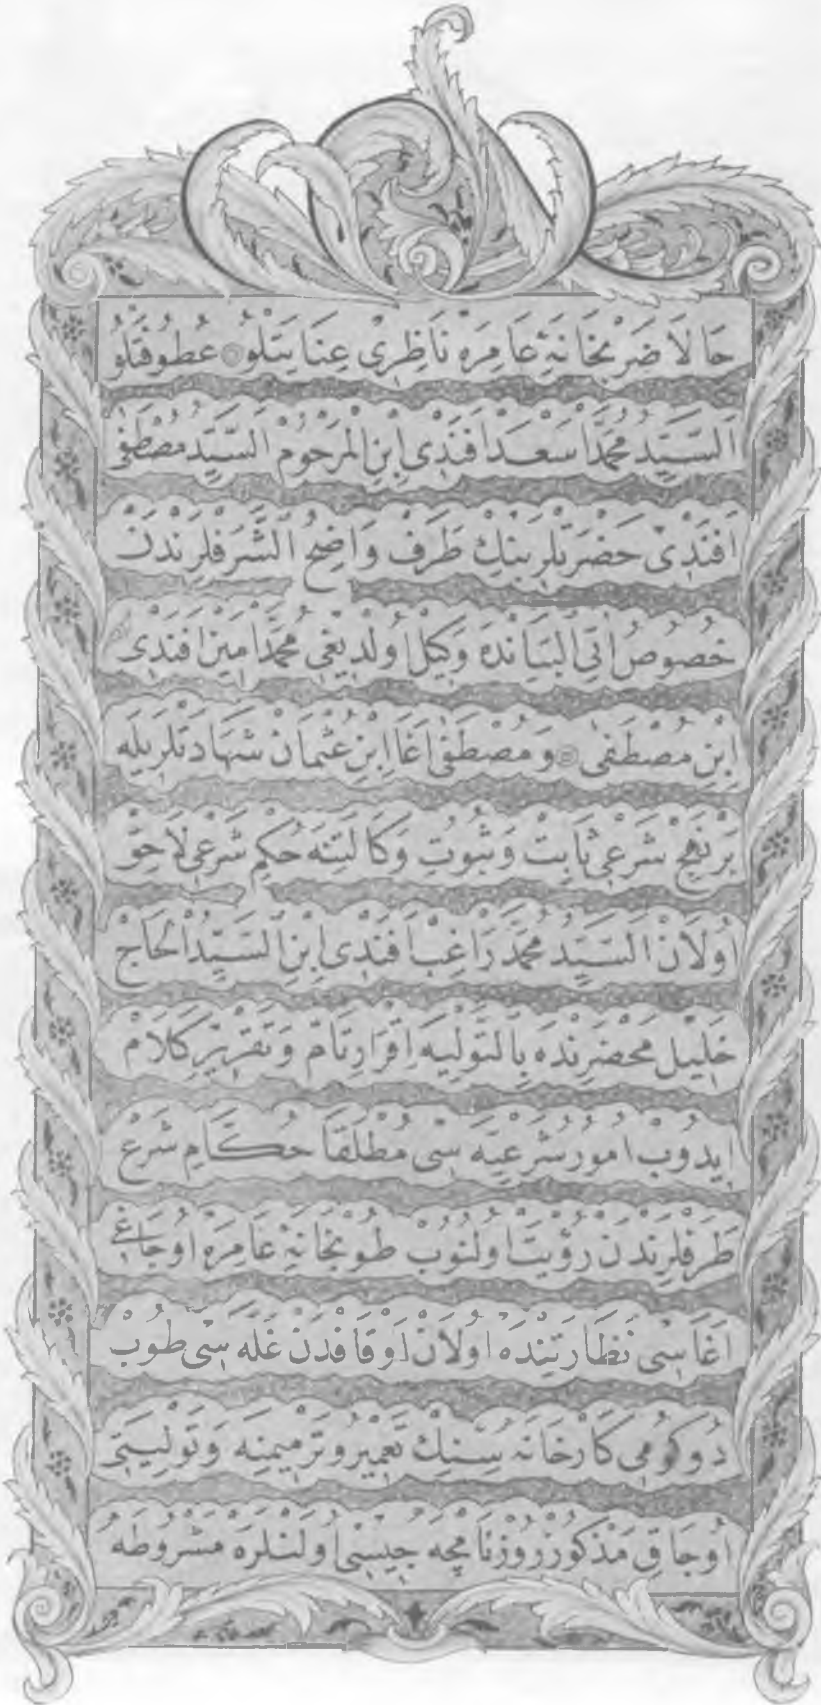 حَالَا ضَرْبْخَانَۀِ عَامِرَه نَاظِرِى عِنَايَتْلُو عُطُوفَتْلُو
اَلسَّيِّدُ مُحَمَّدْ اَسْعَدْ اَفَنْدِى اِبْنِ الْمَرْحُومْ اَلسَّيِّدْ مُصْطَفٰى
اَفَنْدِى حَضْرَتْلَرِينِكْ طَرَفِ وَاضِحُ الشَّرَفْلَرِنْدَنْ
خُصُوصُ اٰتِى الْبَيَانْدَه وَكِيلِ اُولْدِيغِى مُحَمَّدْ اَمِينْ اَفَنْدِى
اِبْنِ مُصْطَفٰى وَ مُصْطَفٰى اَغَا اِبْنِ عُثْمَانْ شَهَادَتْلَرِيلَه
بَرْ نَهْجِ شَرْعِى ثَابِتْ وَثُبُوتِ وَكَالَتِنَه حُكْمِ شَرْعِى لَاحِقْ
اُولَانْ اَلسَّيِّدُ مُحَمَّدْ رَاغِبْ اَفَنْدِى اِبْنِ السَّيِّدُ الْحَاجْ
خَلِيلْ مَحْضَرِنْدَه بِالتَّوْلِيَه اِقْرَارِ تَامْ وَتَقْرِيرِ كَلَامْ
اِيدُوبْ اُمُورِ شَرْعِيَّه سِى مُطْلَقَا حُكَّامِ شَرْعْ
طَرَفْلَرِنْدَنْ رُؤْيَتْ اُولُنُوبْ طُوپْخَانَۀِ عَامِرَه اُوجَاغِى
اَغَاسِى نَظَارَتِنْدَه اُولَانْ اَوْقَافْدَنْ غَلَّه سِى طُوبْ
دُوكُومِى كَارْخَانَه سِنِكْ تَعْمِيرُ وتَرْمِيمِنَه وَتَوْلِيَتِى
اُوجَاقِ مَذْكُورْ رُوزْنَامْچَه جِيسِى اُولَنْلَرَه مَشْرُوطَه